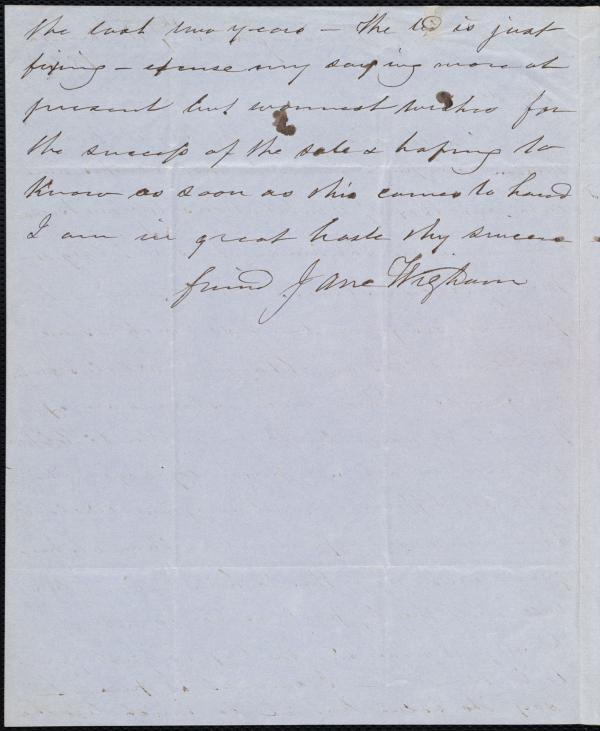 the last two years – the lid is just
fixing – excuse my saying more at
present but warmest wishes for
the success of the sale & hoping to
know as soon as this comes to hand
I am in great haste thy sincere
friend Jane Wigham